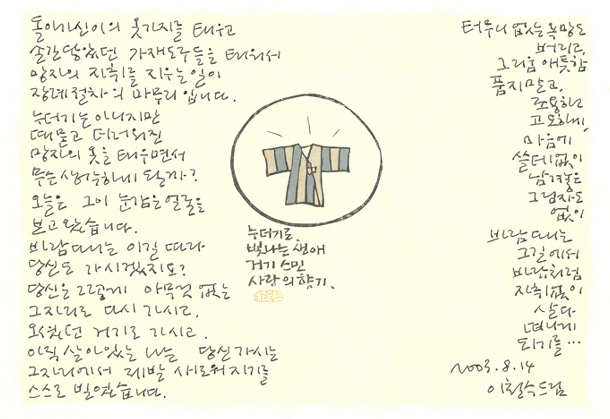 돌아가신이의 옷가지를 태우고
손간닿았던 가재도구들을 태워서
망자의 자취를 지우는 일이
장례절차의 마무리 입니다.
누더기는 아니지만
때묻고 더러워진
망자의 옷을 태우면서
무슨 생각하게 될까?
오늘은 그이 눈감은 얼굴을
보고 왔습니다.
바람 떠나는 이길 따라
당신도 가시겠지요?
당신은 그렇게 아무것 없는
그자리로 다시 가시고,
오셨던 거기로 가시고,
아직 살아있는 나는 당신 가시는
그자리에서 제발 새로워지기를
스스로 빌었습니다.
누더기로
빛나는 생애
거기 스민
사랑의 향기.
터무니 없는 욕망도
버리고,
그리움 애틋함
품지말고,
조용하고
고요하게
마음에
쓸데없이
남겨놓은
그림자도
없이
바람 떠나는
그길에서
바람처럼
자취없이
살다
떠나게
되기를…
2003. 8. 14
이철수드림